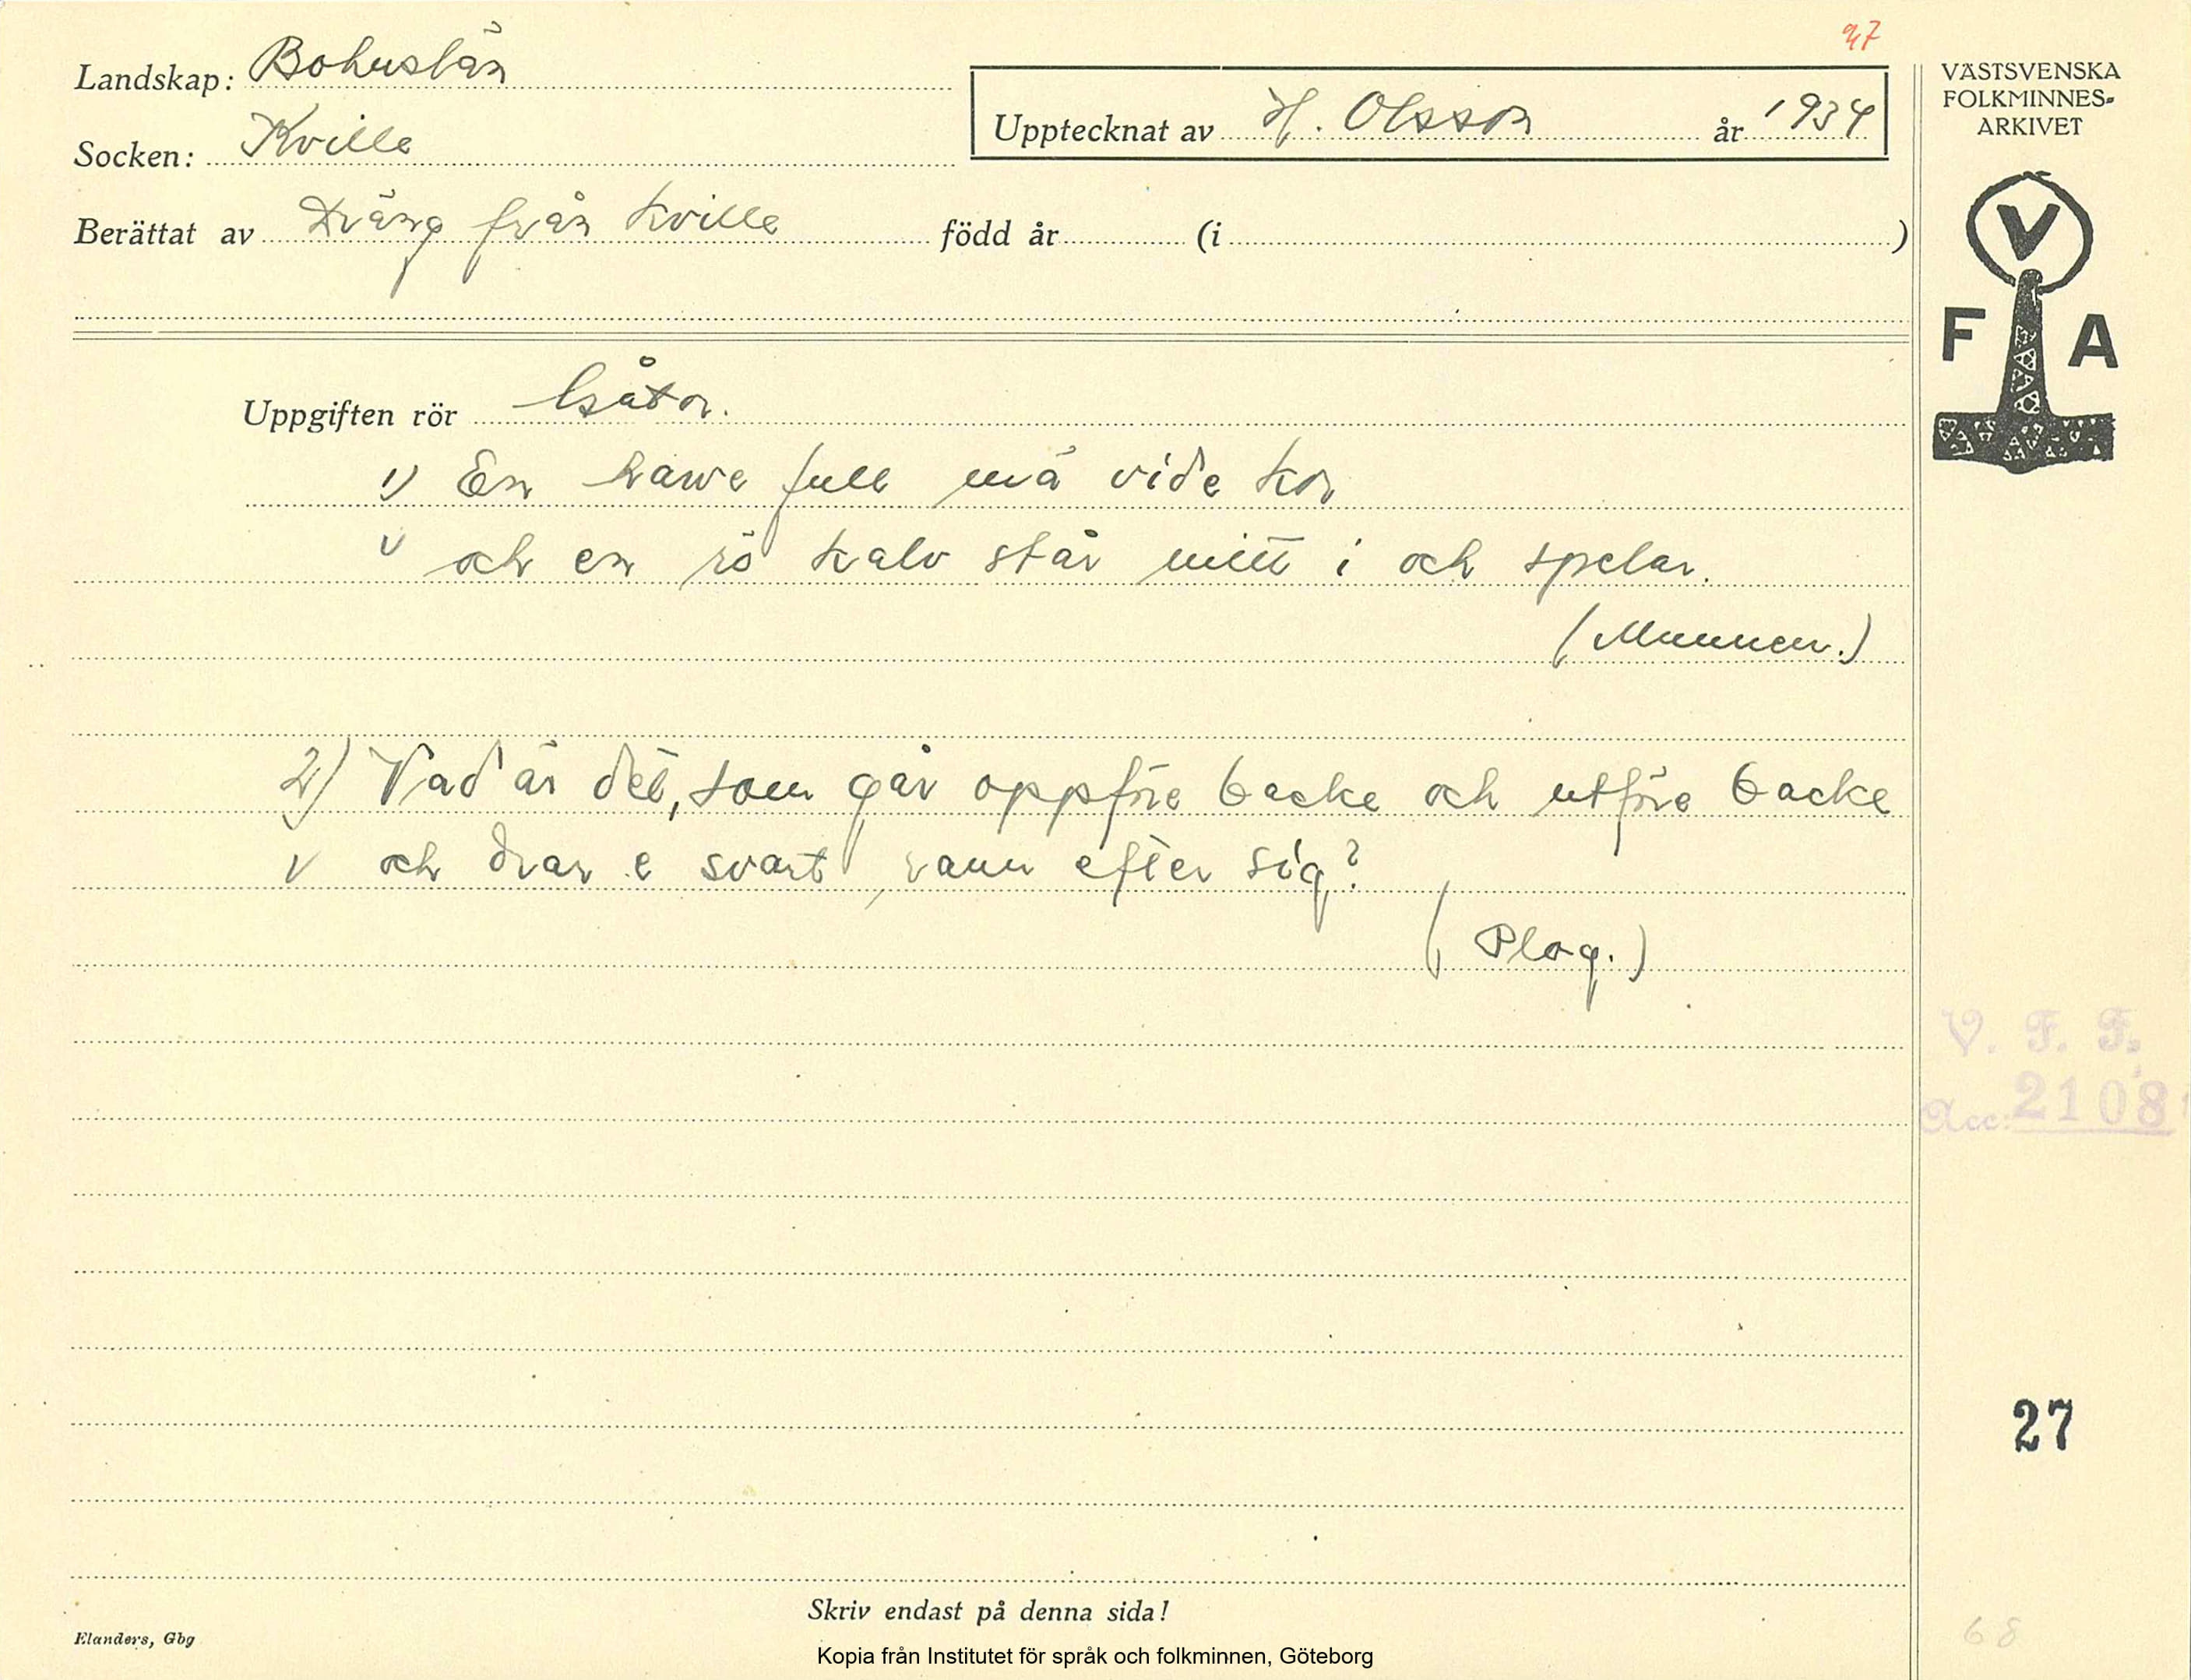 97
Landskap: Bohuslän
Upptecknat av H. Olsson år 1934
Socken: Kville
Berättat av Dräng från Kville född år (i )
VÄSTSVENSKA
FOLKMINNES-
ARKIVET
V
F A
Uppgiften rör Gåtor.
1) En hawe full mä vide kor
v och en rö kalv står mitt i och spelar.
(Munnen.)
2) Vad är det, som går oppföre backe och utföre backe
v och drar e svart ramm efter sig?
(Plog.)
V. F. F.
Acc: 2108
27
Skriv endast på denna sida!
Elanders, Gbg
68
Kopia från Institutet för språk och folkminnen, Göteborg